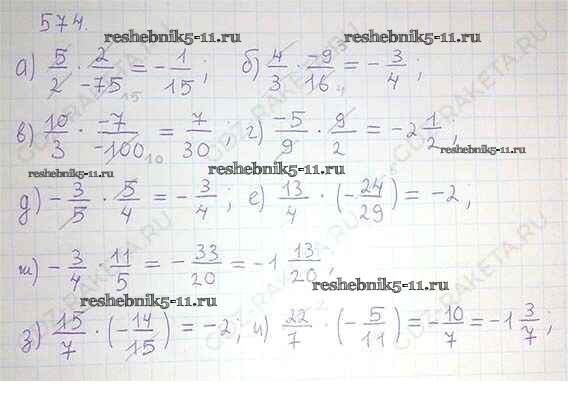 574.
reshebnik5-11.ru reshebnik5-11.ru
а) 5/2 · 2/-75 = -1/15; б) 4/3 · -9/16 = -3/4;
в) 10/3 · -7/-100 = 7/30; г) -5/9 · 9/2 = -2 1/2;
reshebnik5-11.ru
reshebnik5-11.ru
reshebnik5-11.ru
д) -3/5 · 5/4 = -3/4; е) 13/4 · (-24/29) = -2;
ж) -3/4 · 11/5 = -33/20 = -1 13/20;
reshebnik5-11.ru reshebnik5-11.ru
з) 15/7 · (-14/15) = -2; и) 22/7 · (-5/11) = -10/7 = -1 3/7;
GDZ.RAKETA.RU